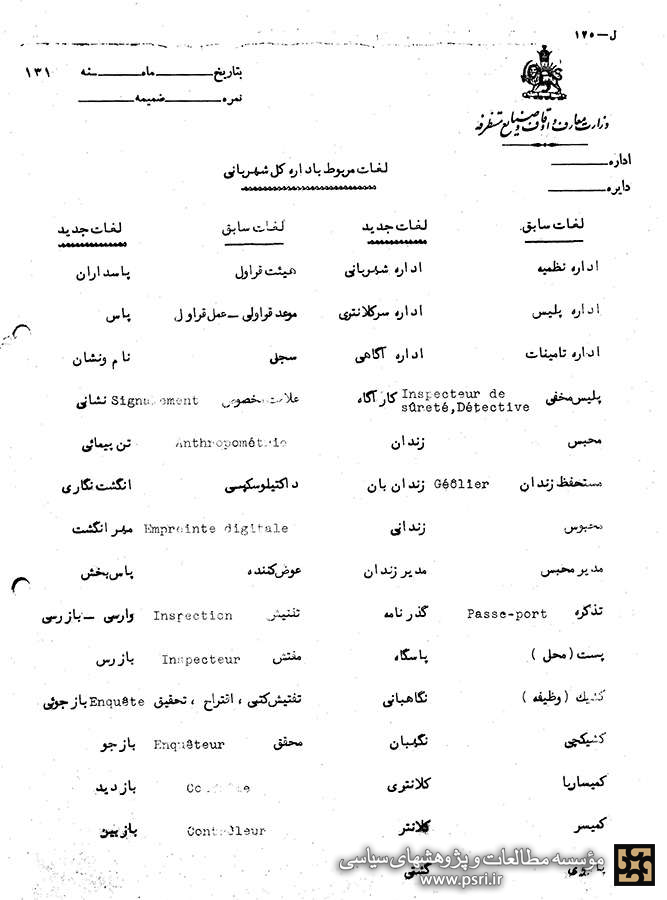 ل—۱۲۵
وزارت معارف و اوقاف و صنایع مستظرفه
بتاریخ ــــ ماه ــــ سنه ۱۳۱
نمره ــــ ضمیمه ــــ
اداره ــــ
دایره ــــ
لغات مربوط باداره کل شهربانی
لغات سابق لغات جدید لغات سابق لغات جدید
اداره نظمیه اداره شهربانی هیئت قراول پاسداران
اداره پلیس اداره سرکلانتری موعد قراولی — عمل قراول پاس
اداره تامینات اداره آگاهی سجلی نام ونشان
پلیس مخفی Inspecteur de sûreté,Détective کارآگاه علامت مخصوص Signalement نشانی
محبس زندان Anthropométrie تن پیمائی
مستحفظ زندان Géôlier زندان بان داکتیلوسکپسی انگشت نگاری
محبوس زندانی Empreinte digitale مهر انگشت
مدیر محبس مدیر زندان عوض کننده پاس بخش
تذکره Passe-port گذرنامه تفتیش Inspection وارسی — بازرسی
پست (محل) پاسگاه مفتش Inspecteur بازرس
کشیك (وظیفه) نگاهبانی تفتیش کتبی ، اقتراح ، تحقیق Enquête بازجوئی
کشیکچی نگهبان محقق Enquêteur بازجو
کمیساریا کلانتری بازدید
کمیسر کلانتر Contrôleur بازبین
گشتی
مؤسسه مطالعات و پژوهشهای سیاسی
www.psri.ir